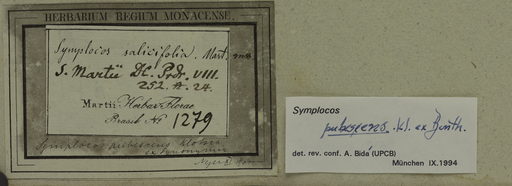 HERBARIUM REGIUM MONACENSE.
Symplocos salicifolia. Mart. mss
S. Martii DC. Prdr. VIII.
252. n. 24.
Martii Herbar. Florae
Brasil. No 1279
Symplocos pubescens Klotzsch
ex synonymis
Symplocos
pubescens Kl. ex Benth.
det. rev. conf. A. Bidá (UPCB)
München IX.1994